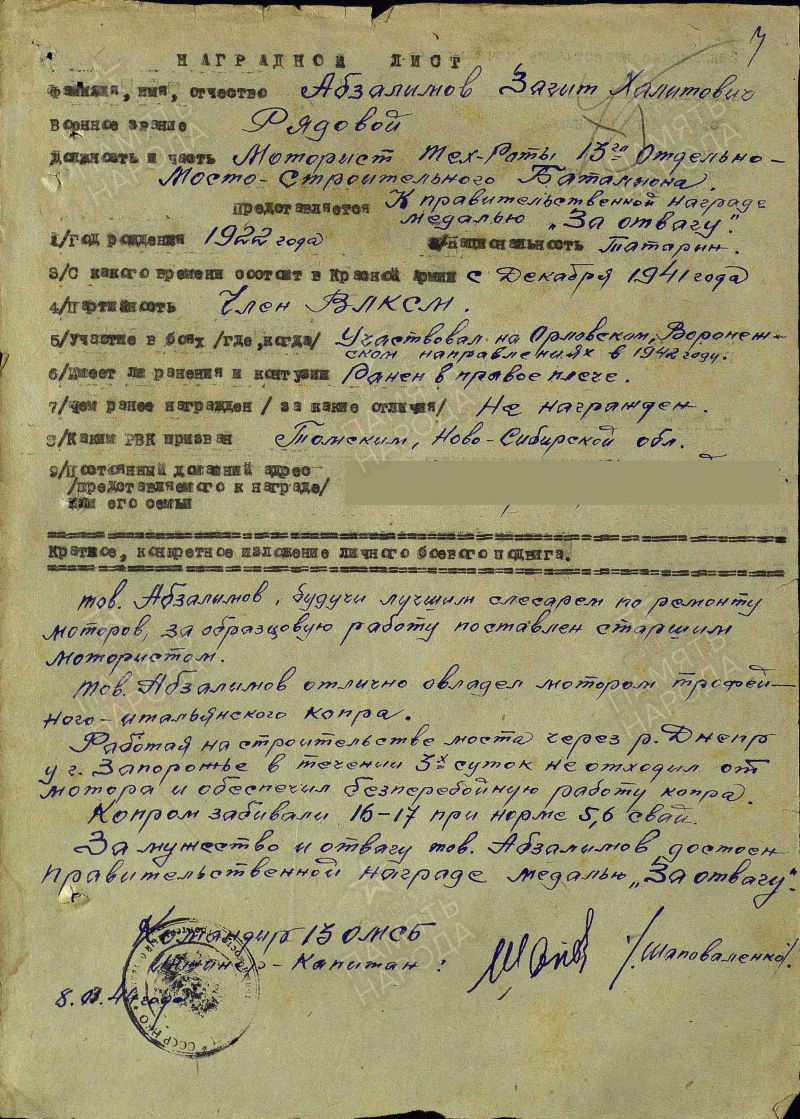 7
НАГРАДНОЙ ЛИСТ
Фамилия, имя, отчество Абзалимов Загит Халитович
Военное звание Рядовой
Должность и часть Моторист Тех-Роты 13го Отдельно-
Мосто-Строительного Баталиона.
Представляется К правительственной награде
медалью „За отвагу".
1/Год рождения 1922 года 2/Национальность Татарин.
3/С какого времени состоит в Красной Армии с Декабря 1941 года
4/Партийность Член ВЛКСМ.
5/Участие в боях /где,когда/ Участвовал на Орловском, Воронеж-
ском направлениях в 1942 году.
6/Имеет ли ранения и контузии Ранен в правое плече.
7/Чем ранее награжден / за какие отличия/ Не награжден.
8/Каким РВК призван Томским, Ново-Сибирской обл.
9/Постоянный домашний адрес
/представляемого к награде/
или его семьи
Краткое, конкретное изложение личного боевого подвига.
тов. Абзалимов, будучи лучшим слесарем по ремонту
моторов, за образцовую работу поставлен старшим
мотористом.
Тов. Абзалимов отлично овладел мотором трофей-
ного-итальянского копра.
Работая на строительстве моста через р. Днепр
у г. Запорожье в течении 3х суток не отходил от
мотора и обеспечил безперебойную работу копра.
Копром забивали 16-17 при норме 5,6 свай.
За мужество и отвагу тов. Абзалимов достоен
правительственной награде медалью „За отвагу".
Командир 13 ОМСБ
Инженер-Капитан: /Шаповаленко/.
44 года
ПАМЯТЬ НАРОДА